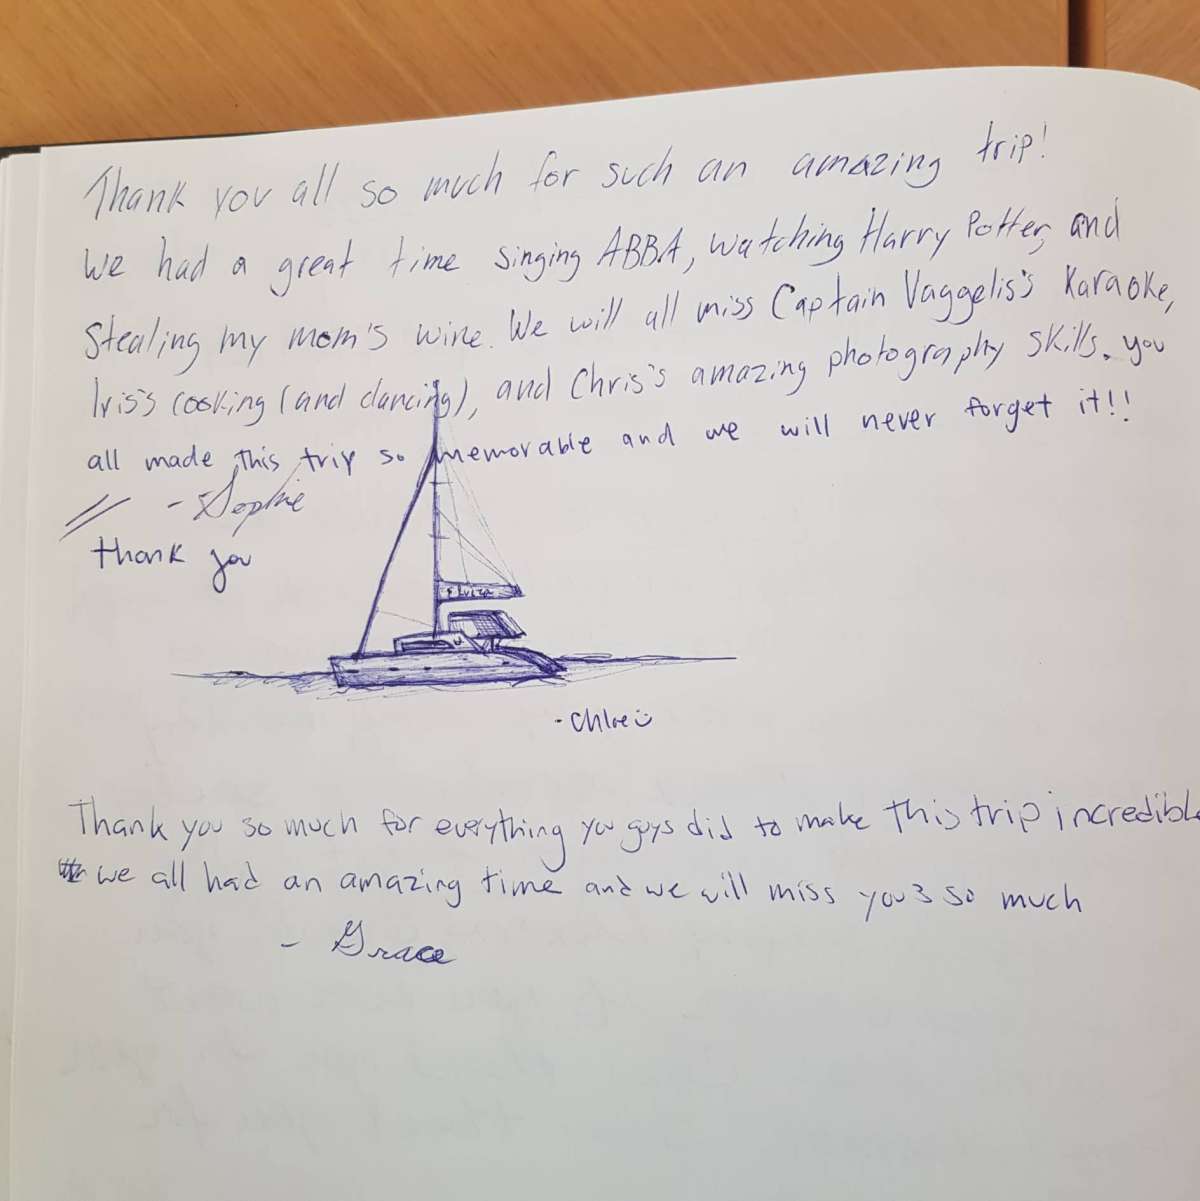 Thank you all so much for such an amazing trip!
We had a great time singing ABBA, watching Harry Potter, and
Stealing my mom's wine. We will all miss Captain Vaggelis's Karaoke,
Iris's cooking (and dancing), and Chris's amazing photography skills. you
all made this trip so memorable and we will never forget it!!
- Sophie
thank you
- Chloe
Thank you so much for everything you guys did to make this trip incredible
we all had an amazing time and we will miss you 3 so much
- Grace